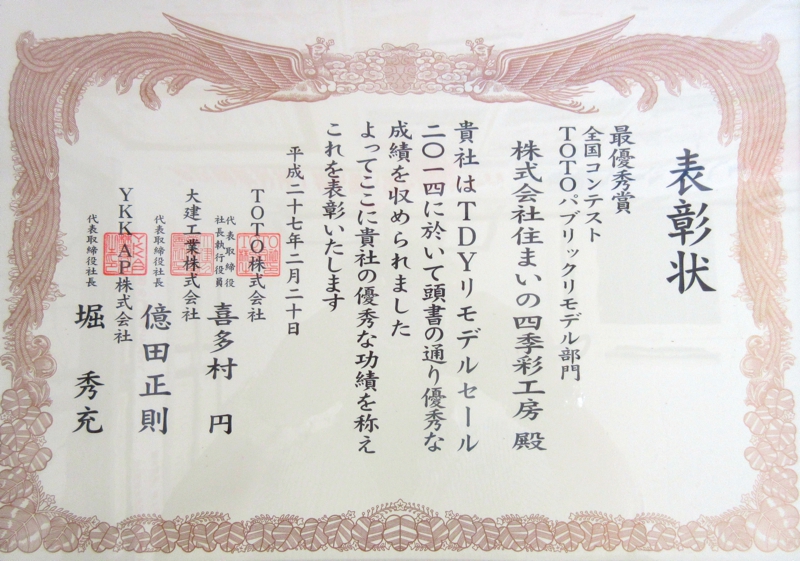 表彰状
最優秀賞
全国コンテスト
TOTOパブリックリモデル部門
株式会社住まいの四季彩工房 殿
貴社はTDYリモデルセール
二〇一四に於いて頭書の通り優秀な
成績を収められました
よってここに貴社の優秀な功績を称え
これを表彰いたします
平成二十七年二月二十日
TOTO株式会社
代表取締役
社長執行役員
喜多村 円
大建工業株式会社
代表取締役社長
億田正則
YKKAP株式会社
代表取締役社長
堀 秀充